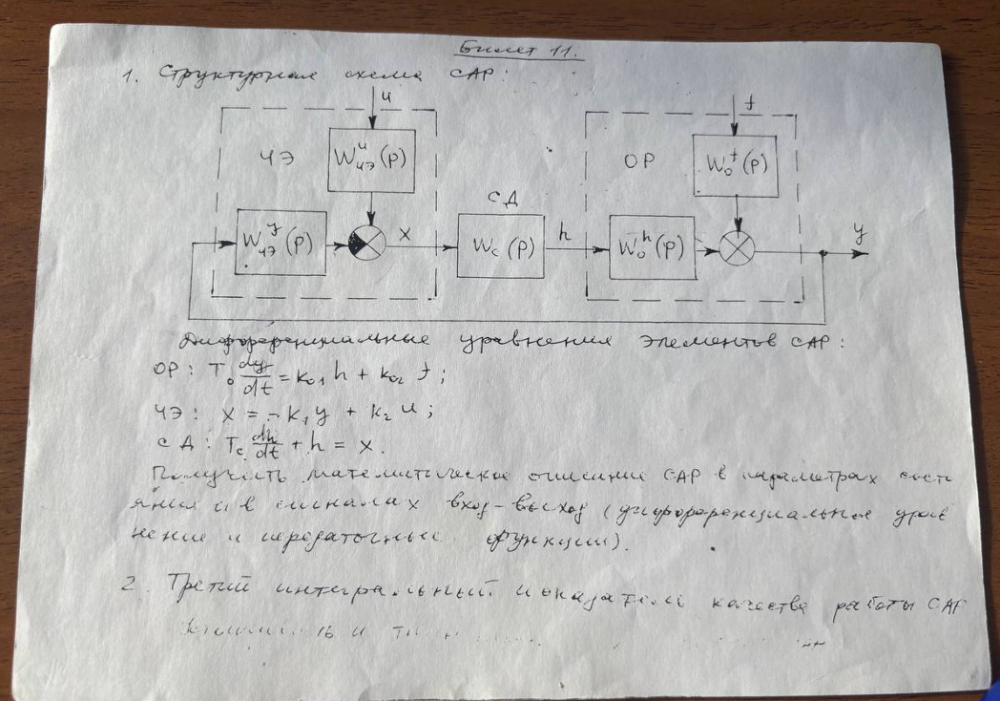 Билет 11.
1. Структурная схема САР:
u
f
ЧЭ
W^u_чэ(р)
ОР
W^f_о(р)
СД
W^у_чэ(р)
x
W_с(р)
h
W^h_о(р)
y
Дифференциальные уравнения элементов САР:
ОР: T_о dy/dt = к_о1 h + к_о2 f;
ЧЭ: x = - к_1 y + к_2 u;
СД: T_с dh/dt + h = x.
Получить математическое описание САР в параметрах состо
яния и в сигналах вход-выход (дифференциальное урав
нение и передаточные функции).
2. Третий интегральный показатель качества работы САР